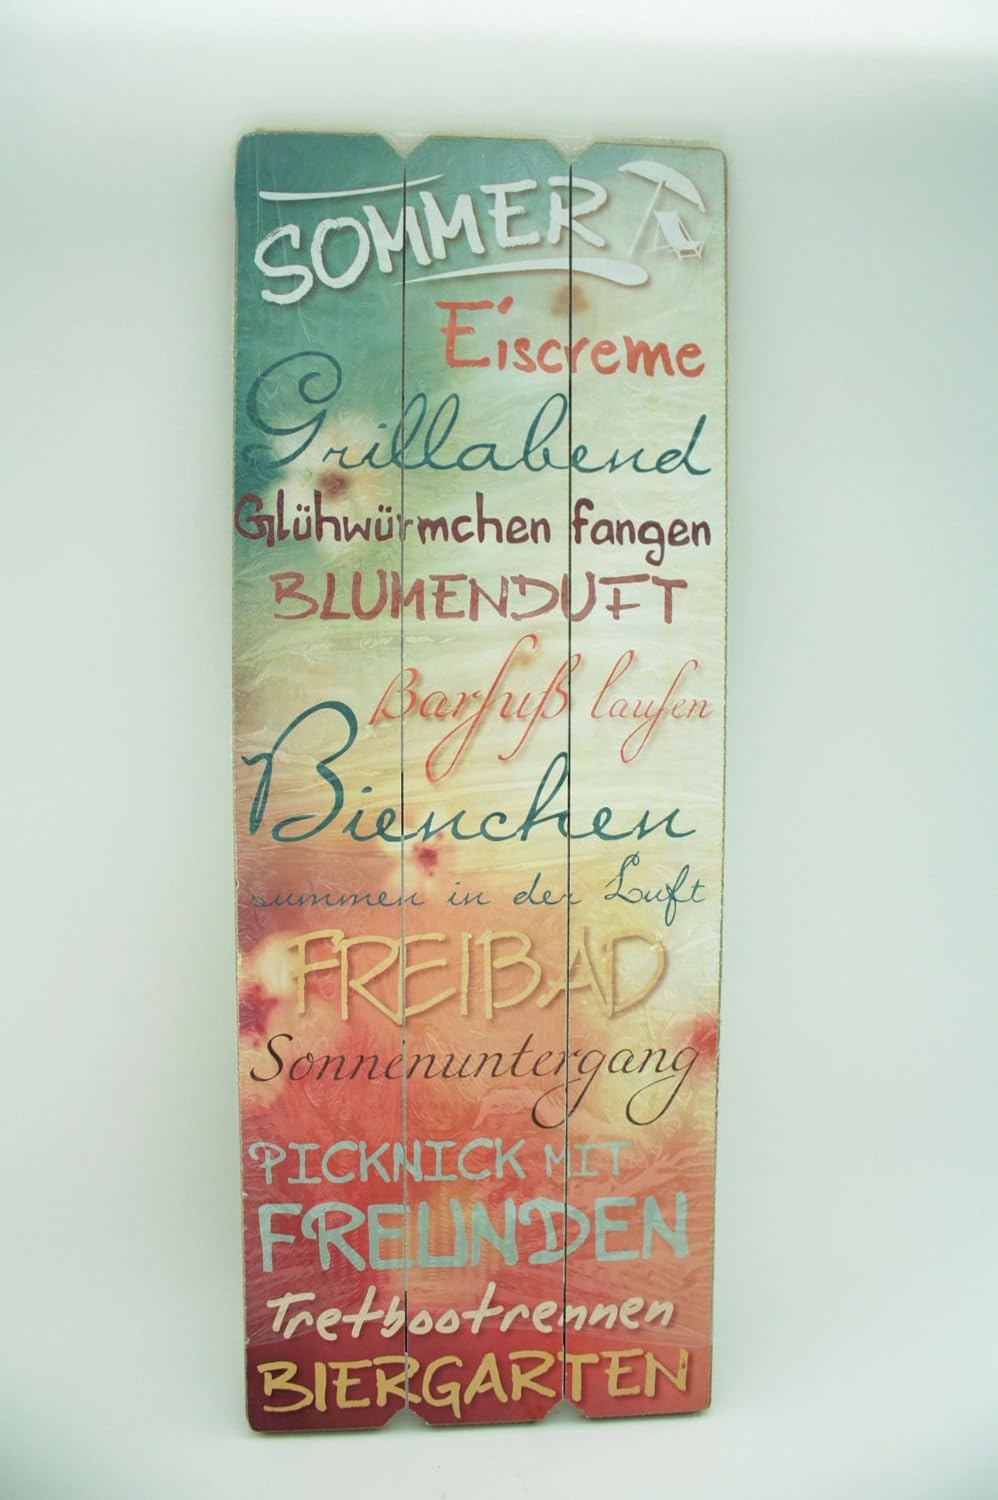 SOMMER
Eiscreme
Grillabend
Glühwürmchen fangen
BLUMENDUFT
Barfuß laufen
Bienchen
summen in der Luft
FREIBAD
Sonnenuntergang
PICKNICK MIT
FREUNDEN
Tretbootrennen
BIERGARTEN